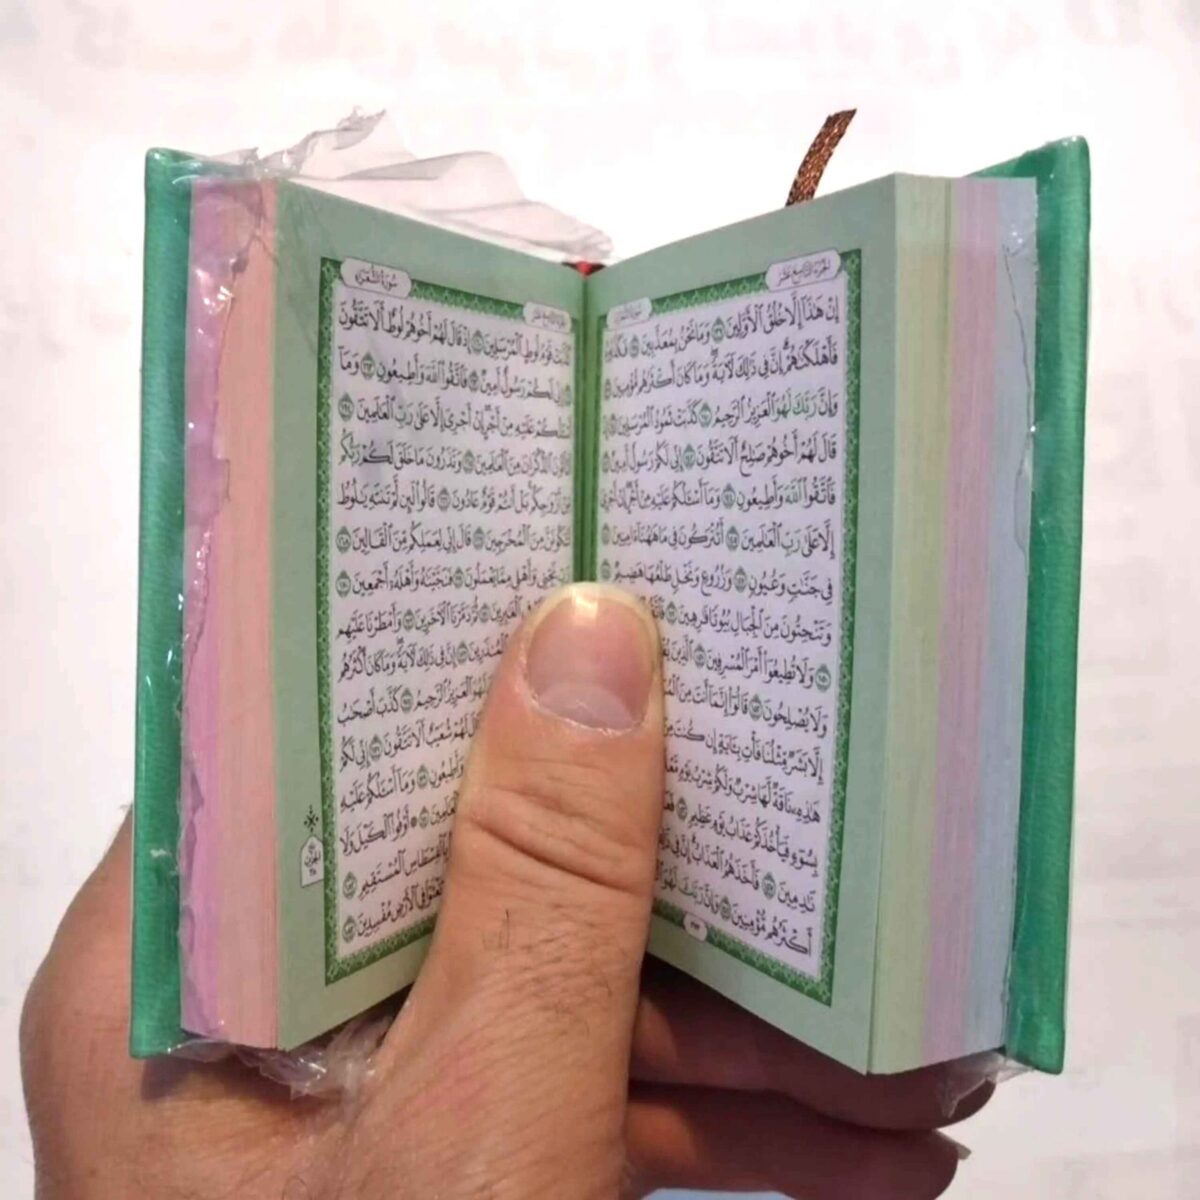 الجزء التاسع عشر
سورة الشعراء
إِنْ هَٰذَا إِلَّا خُلُقُ ٱلْأَوَّلِينَ ١٣٧ وَمَا نَحْنُ بِمُعَذَّبِينَ ١٣٨ فَكَذَّبُوهُ
فَأَهْلَكْنَٰهُمْ إِنَّ فِي ذَٰلِكَ لَـَٔايَةً وَمَا كَانَ أَكْثَرُهُم مُّؤْمِنِينَ ١٣٩
وَإِنَّ رَبَّكَ لَهُوَ ٱلْعَزِيزُ ٱلرَّحِيمُ ١٤٠ كَذَّبَتْ ثَمُودُ ٱلْمُرْسَلِينَ ١٤١ إِذْ
قَالَ لَهُمْ أَخُوهُمْ صَٰلِحٌ أَلَا تَتَّقُونَ ١٤٢ إِنِّي لَكُمْ رَسُولٌ أَمِينٌ ١٤٣
فَٱتَّقُوا۟ ٱللَّهَ وَأَطِيعُونِ ١٤٤ وَمَآ أَسْـَٔلُكُمْ عَلَيْهِ مِنْ أَجْرٍ إِنْ أَجْرِيَ
إِلَّا عَلَىٰ رَبِّ ٱلْعَٰلَمِينَ ١٤٥ أَتُتْرَكُونَ فِي مَا هَٰهُنَآ ءَامِنِينَ ١٤٦
فِي جَنَّٰتٍ وَعُيُونٍ ١٤٧ وَزُرُوعٍ وَنَخْلٍ طَلْعُهَا هَضِيمٌ ١٤٨
وَتَنْحِتُونَ مِنَ ٱلْجِبَالِ بُيُوتًا فَٰرِهِينَ ١٤٩
وَلَا تُطِيعُوٓا۟ أَمْرَ ٱلْمُسْرِفِينَ ١٥١ ٱلَّذِينَ
وَلَا يُصْلِحُونَ ١٥٢ قَالُوٓا۟ إِنَّمَآ أَنتَ مِنَ
إِلَّا بَشَرٌ مِّثْلُنَا فَأْتِ بِـَٔايَةٍ إِن كُنتَ
هَٰذِهِۦ نَاقَةٌ لَّهَا شِرْبٌ وَلَكُمْ شِرْبُ يَوْمٍ
بِسُوٓءٍ فَيَأْخُذَكُمْ عَذَابُ يَوْمٍ عَظِيمٍ ١٥٦
نَٰدِمِينَ ١٥٧ فَأَخَذَهُمُ ٱلْعَذَابُ إِنَّ فِي
أَكْثَرُهُم مُّؤْمِنِينَ ١٥٨ وَإِنَّ رَبَّكَ لَهُوَ
٣٧٣
الجزء التاسع عشر
سورة الشعراء
كَذَّبَتْ قَوْمُ لُوطٍ ٱلْمُرْسَلِينَ ١٦٠ إِذْ قَالَ لَهُمْ أَخُوهُمْ لُوطٌ أَلَا تَتَّقُونَ
١٦١ إِنِّي لَكُمْ رَسُولٌ أَمِينٌ ١٦٢ فَٱتَّقُوا۟ ٱللَّهَ وَأَطِيعُونِ ١٦٣ وَمَآ
أَسْـَٔلُكُمْ عَلَيْهِ مِنْ أَجْرٍ إِنْ أَجْرِيَ إِلَّا عَلَىٰ رَبِّ ٱلْعَٰلَمِينَ ١٦٤
أَتَأْتُونَ ٱلذُّكْرَانَ مِنَ ٱلْعَٰلَمِينَ ١٦٥ وَتَذَرُونَ مَا خَلَقَ لَكُمْ رَبُّكُم
مِّنْ أَزْوَٰجِكُم بَلْ أَنتُمْ قَوْمٌ عَادُونَ ١٦٦ قَالُوا۟ لَئِن لَّمْ تَنتَهِ يَٰلُوطُ
لَتَكُونَنَّ مِنَ ٱلْمُخْرَجِينَ ١٦٧ قَالَ إِنِّي لِعَمَلِكُم مِّنَ ٱلْقَالِينَ ١٦٨
رَبِّ نَجِّنِي وَأَهْلِي مِمَّا يَعْمَلُونَ ١٦٩ فَنَجَّيْنَٰهُ وَأَهْلَهُۥٓ أَجْمَعِينَ ١٧٠
فِي ٱلْغَٰبِرِينَ ١٧١ ثُمَّ دَمَّرْنَا ٱلْـَٔاخَرِينَ ١٧٢ وَأَمْطَرْنَا عَلَيْهِم
ٱلْمُنذَرِينَ ١٧٣ إِنَّ فِي ذَٰلِكَ لَـَٔايَةً وَمَا كَانَ أَكْثَرُهُم
لَهُوَ ٱلْعَزِيزُ ٱلرَّحِيمُ ١٧٥ كَذَّبَ أَصْحَٰبُ
قَالَ لَهُمْ شُعَيْبٌ أَلَا تَتَّقُونَ ١٧٧ إِنِّي لَكُمْ
وَأَطِيعُونِ ١٧٩ وَمَآ أَسْـَٔلُكُمْ عَلَيْهِ
ٱلْعَٰلَمِينَ ١٨٠ ۞ أَوْفُوا۟ ٱلْكَيْلَ وَلَا
بِٱلْقِسْطَاسِ ٱلْمُسْتَقِيمِ ١٨٢
تَعْثَوْا۟ فِي ٱلْأَرْضِ مُفْسِدِينَ ١٨٣